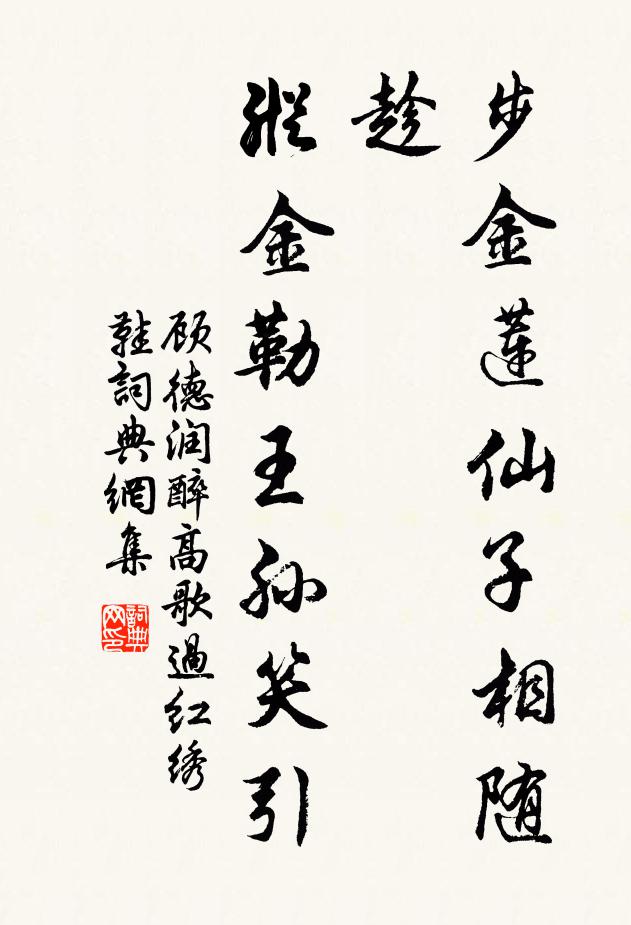 步金蓮仙子相随
趁
縱金勒王孙笑引
顾德润醉高歌過红绣
鞋詞典網集
詞典
网印